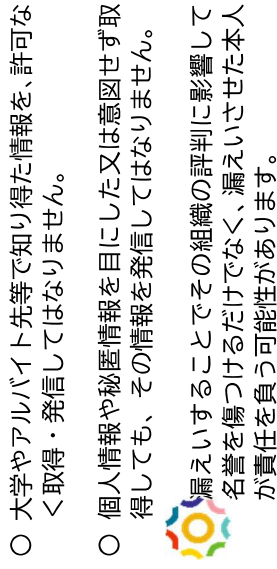 ○ 大学やアルバイト先等で知り得た情報を、許可な
く取得・発信してはなりません。
○ 個人情報や秘匿情報を目にした又は意図せず取
得しても、その情報を発信してはなりません。
漏えいすることでその組織の評判に影響して
名誉を傷つけるだけでなく、漏えいさせた本人
が責任を負う可能性があります。